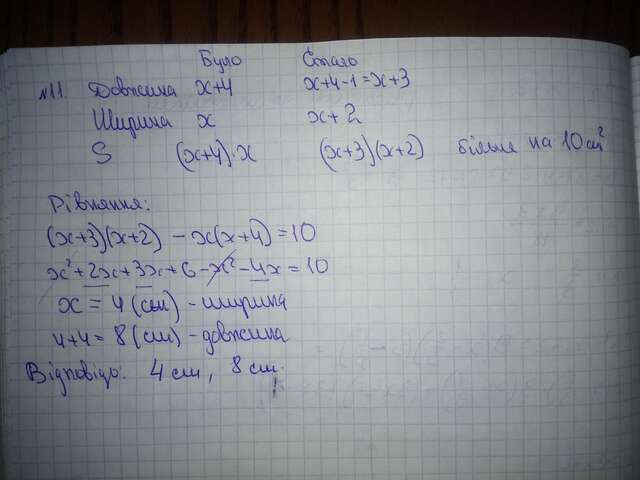 Було Стало
№11. Довжина x+4 x+4-1=x+3
Ширина x x+2
S (x+4)·x (x+3)(x+2) більше на 10 см²
Рівняння:
(x+3)(x+2) - x(x+4) = 10
x²+2x+3x+6-x²-4x=10
x = 4 (см) - ширина
4+4=8 (см) - довжина
Відповідь: 4 см, 8 см.